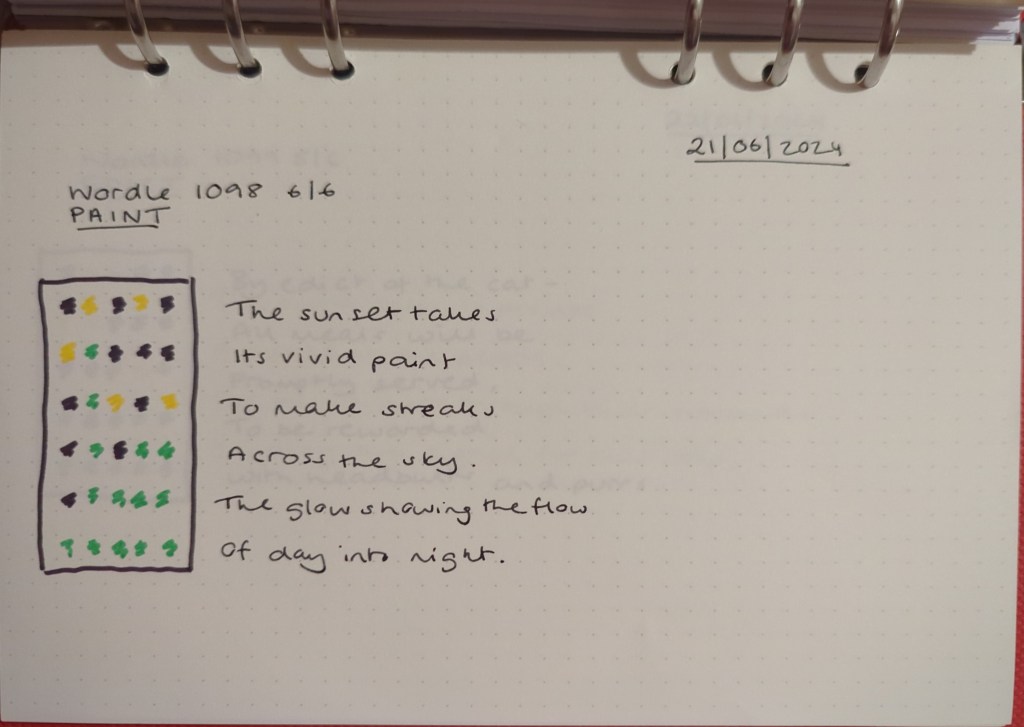 21/06/2024
Wordle 1098 6/6
PAINT
The sunset takes
Its vivid paint
To make streaks
Across the sky.
The glow showing the flow
Of day into night.